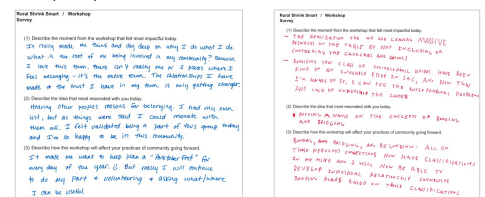 Rural Shrink Smart / Workshop
Survey
(1) Describe the moment from the workshop that felt most impactful today.
It really made me think and dig deep on why I do what I do.
what is the root of me being involved in my community? Because
I love this town. there isn't really one or 2 places where I
feel belonging - it's the entire town. The relationships I have
made & the trust I have in my town is only getting stronger.
(2) Describe the idea that most resonated with you today.
Hearing other peoples reasons for belonging. I had my own
list, but as things were said I could resonate with
them all. I felt validated being a part of this group today
and I'm so happy to be in this community.
(3) Describe how this workshop will affect your practices of community going forward.
It made me want to help plan a "
every day of the year. But really I will continue
to do my part & volunteering & asking what/where
I can be useful.
Rural Shrink Smart / Workshop
Survey
(1) Describe the moment from the workshop that felt most impactful today.
- THE REALIZATION THAT WE ARE LEAVING MASSIVE
RESOURCES ON THE TABLE BY NOT INCLUDING OR
CONSIDERING THE CHURCHES AND SCHOOLS
- REALIZING THIS CLASS OF
KIND OF AN INVISIBLE EDGE IN SAC, AND NOW THAT
I'M AWARE OF IT, I CAN SEE THE INTERPERSONAL PROBLEMS
AND LACK OF
(2) Describe the idea that most resonated with you today.
PUTTING A NAME ON THE CONCEPTS OF BONDING
AND BRIDGING
(3) Describe how this workshop will affect your practices of community going forward.
BONDING, AND BRIDGING, AND BE KNOWN: ALL OF
THESE NEBULOUS CONNECTIONS NOW HAVE CLASSIFICATIONS
IN MY MIND AND I WILL NOW BE ABLE TO
DEVELOP INDIVIDUAL RELATIONSHIP
PLANS BASED ON THESE CLASSIFICATIONS